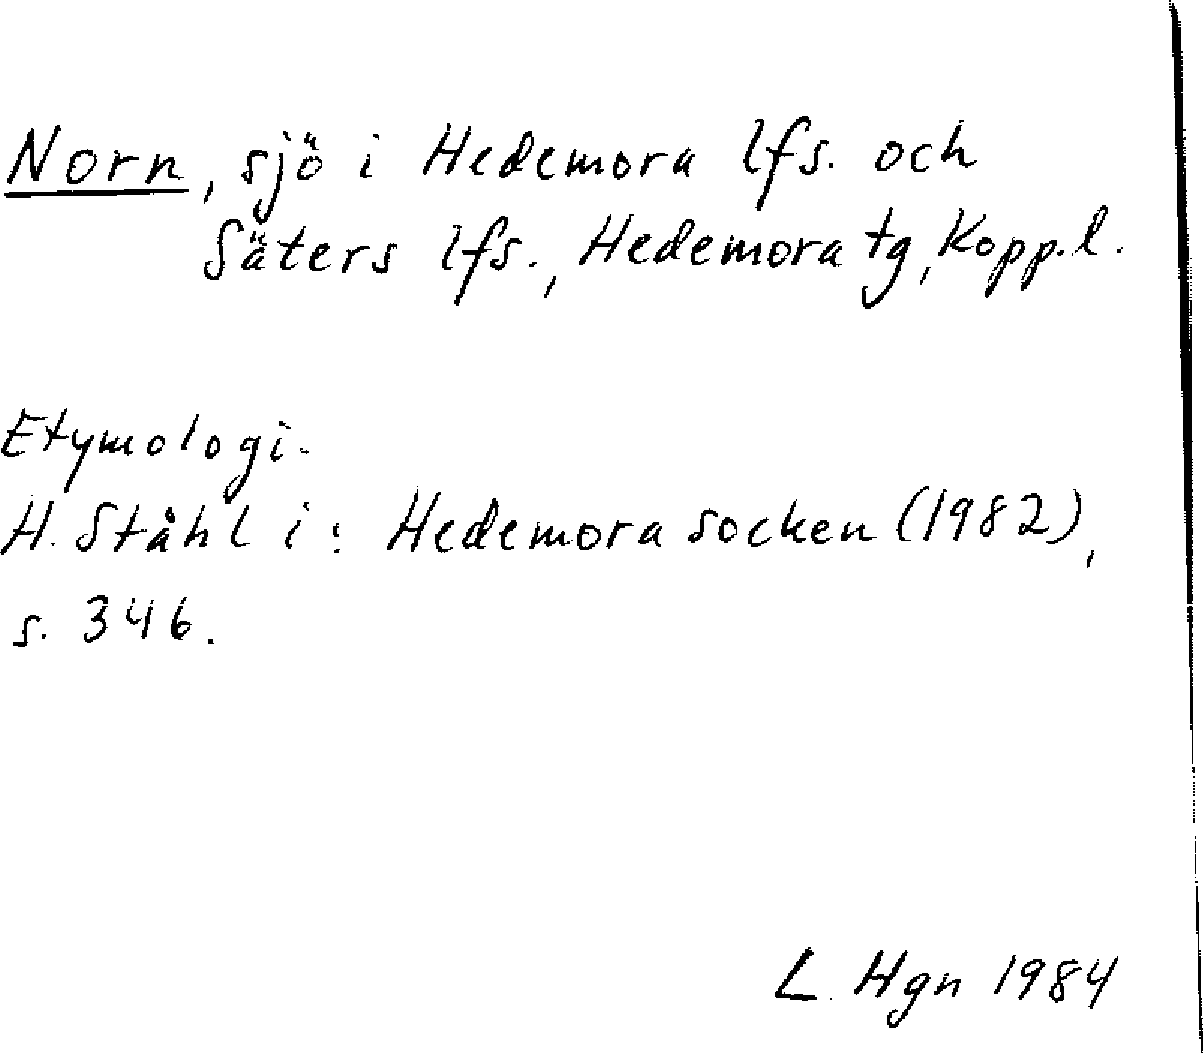 Norn, sjö i Hedemora lfs. och
Säters lfs., Hedemora tg, Kopp.l.
Etymologi.
H. Ståhl i: Hedemora socken (1982),
s. 346.
L. Hgn 1984